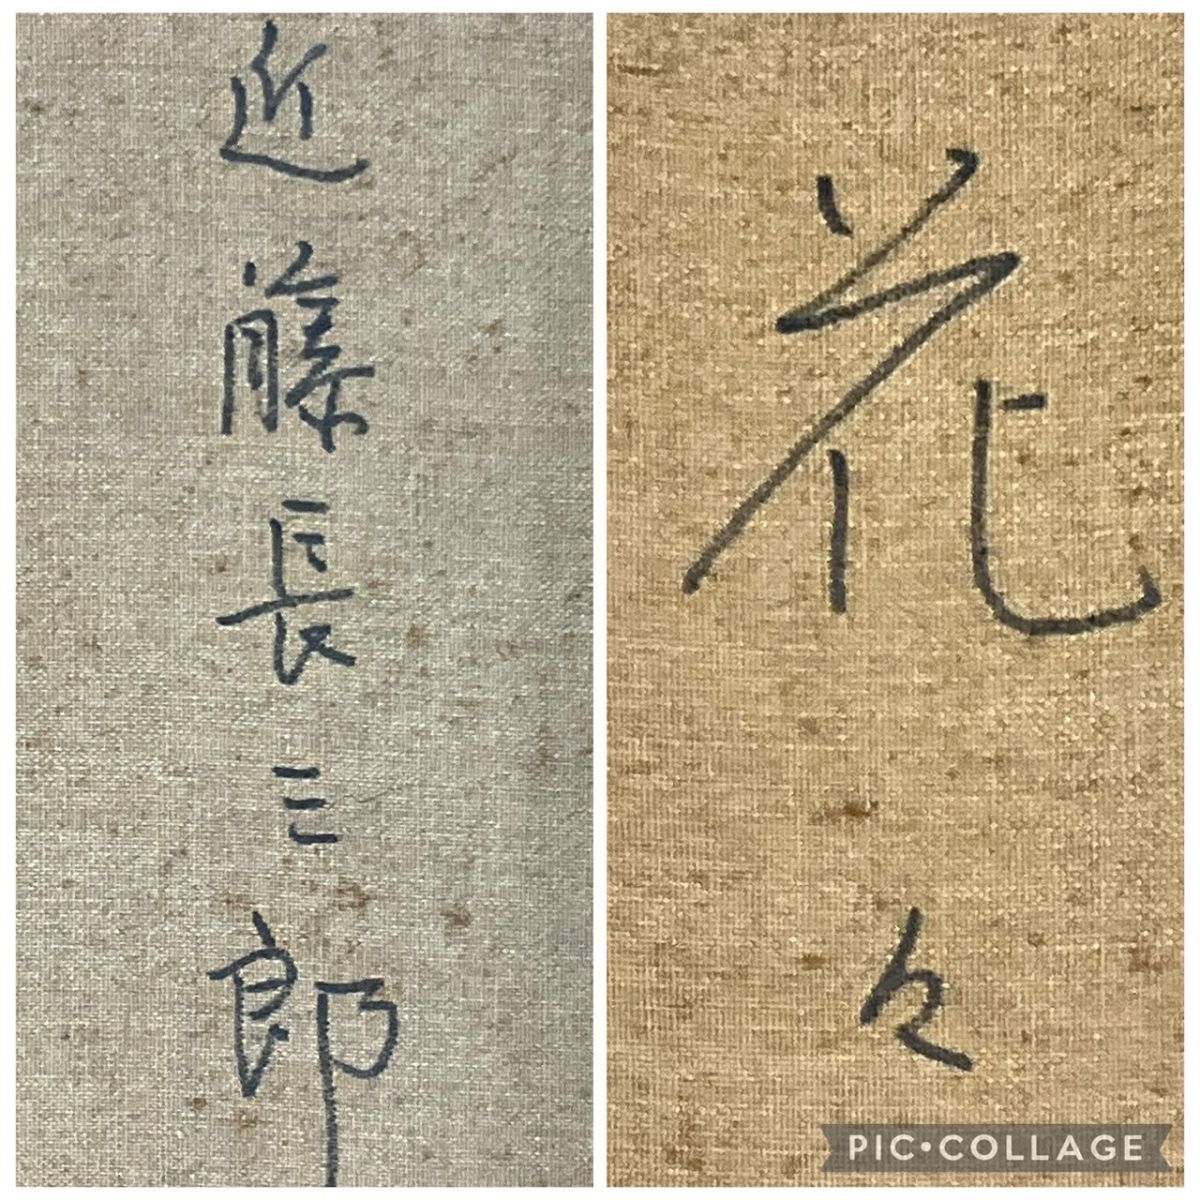 近藤長三郎
花々
PIC•COLLAGE